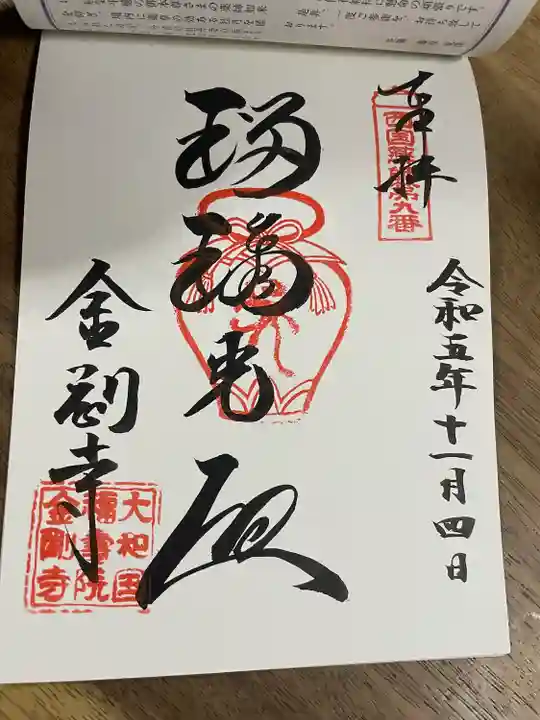 奉拝
西国薬師第九番
令和五年十一月四日
瑠璃光殿
金剛寺
大和国
金剛寺